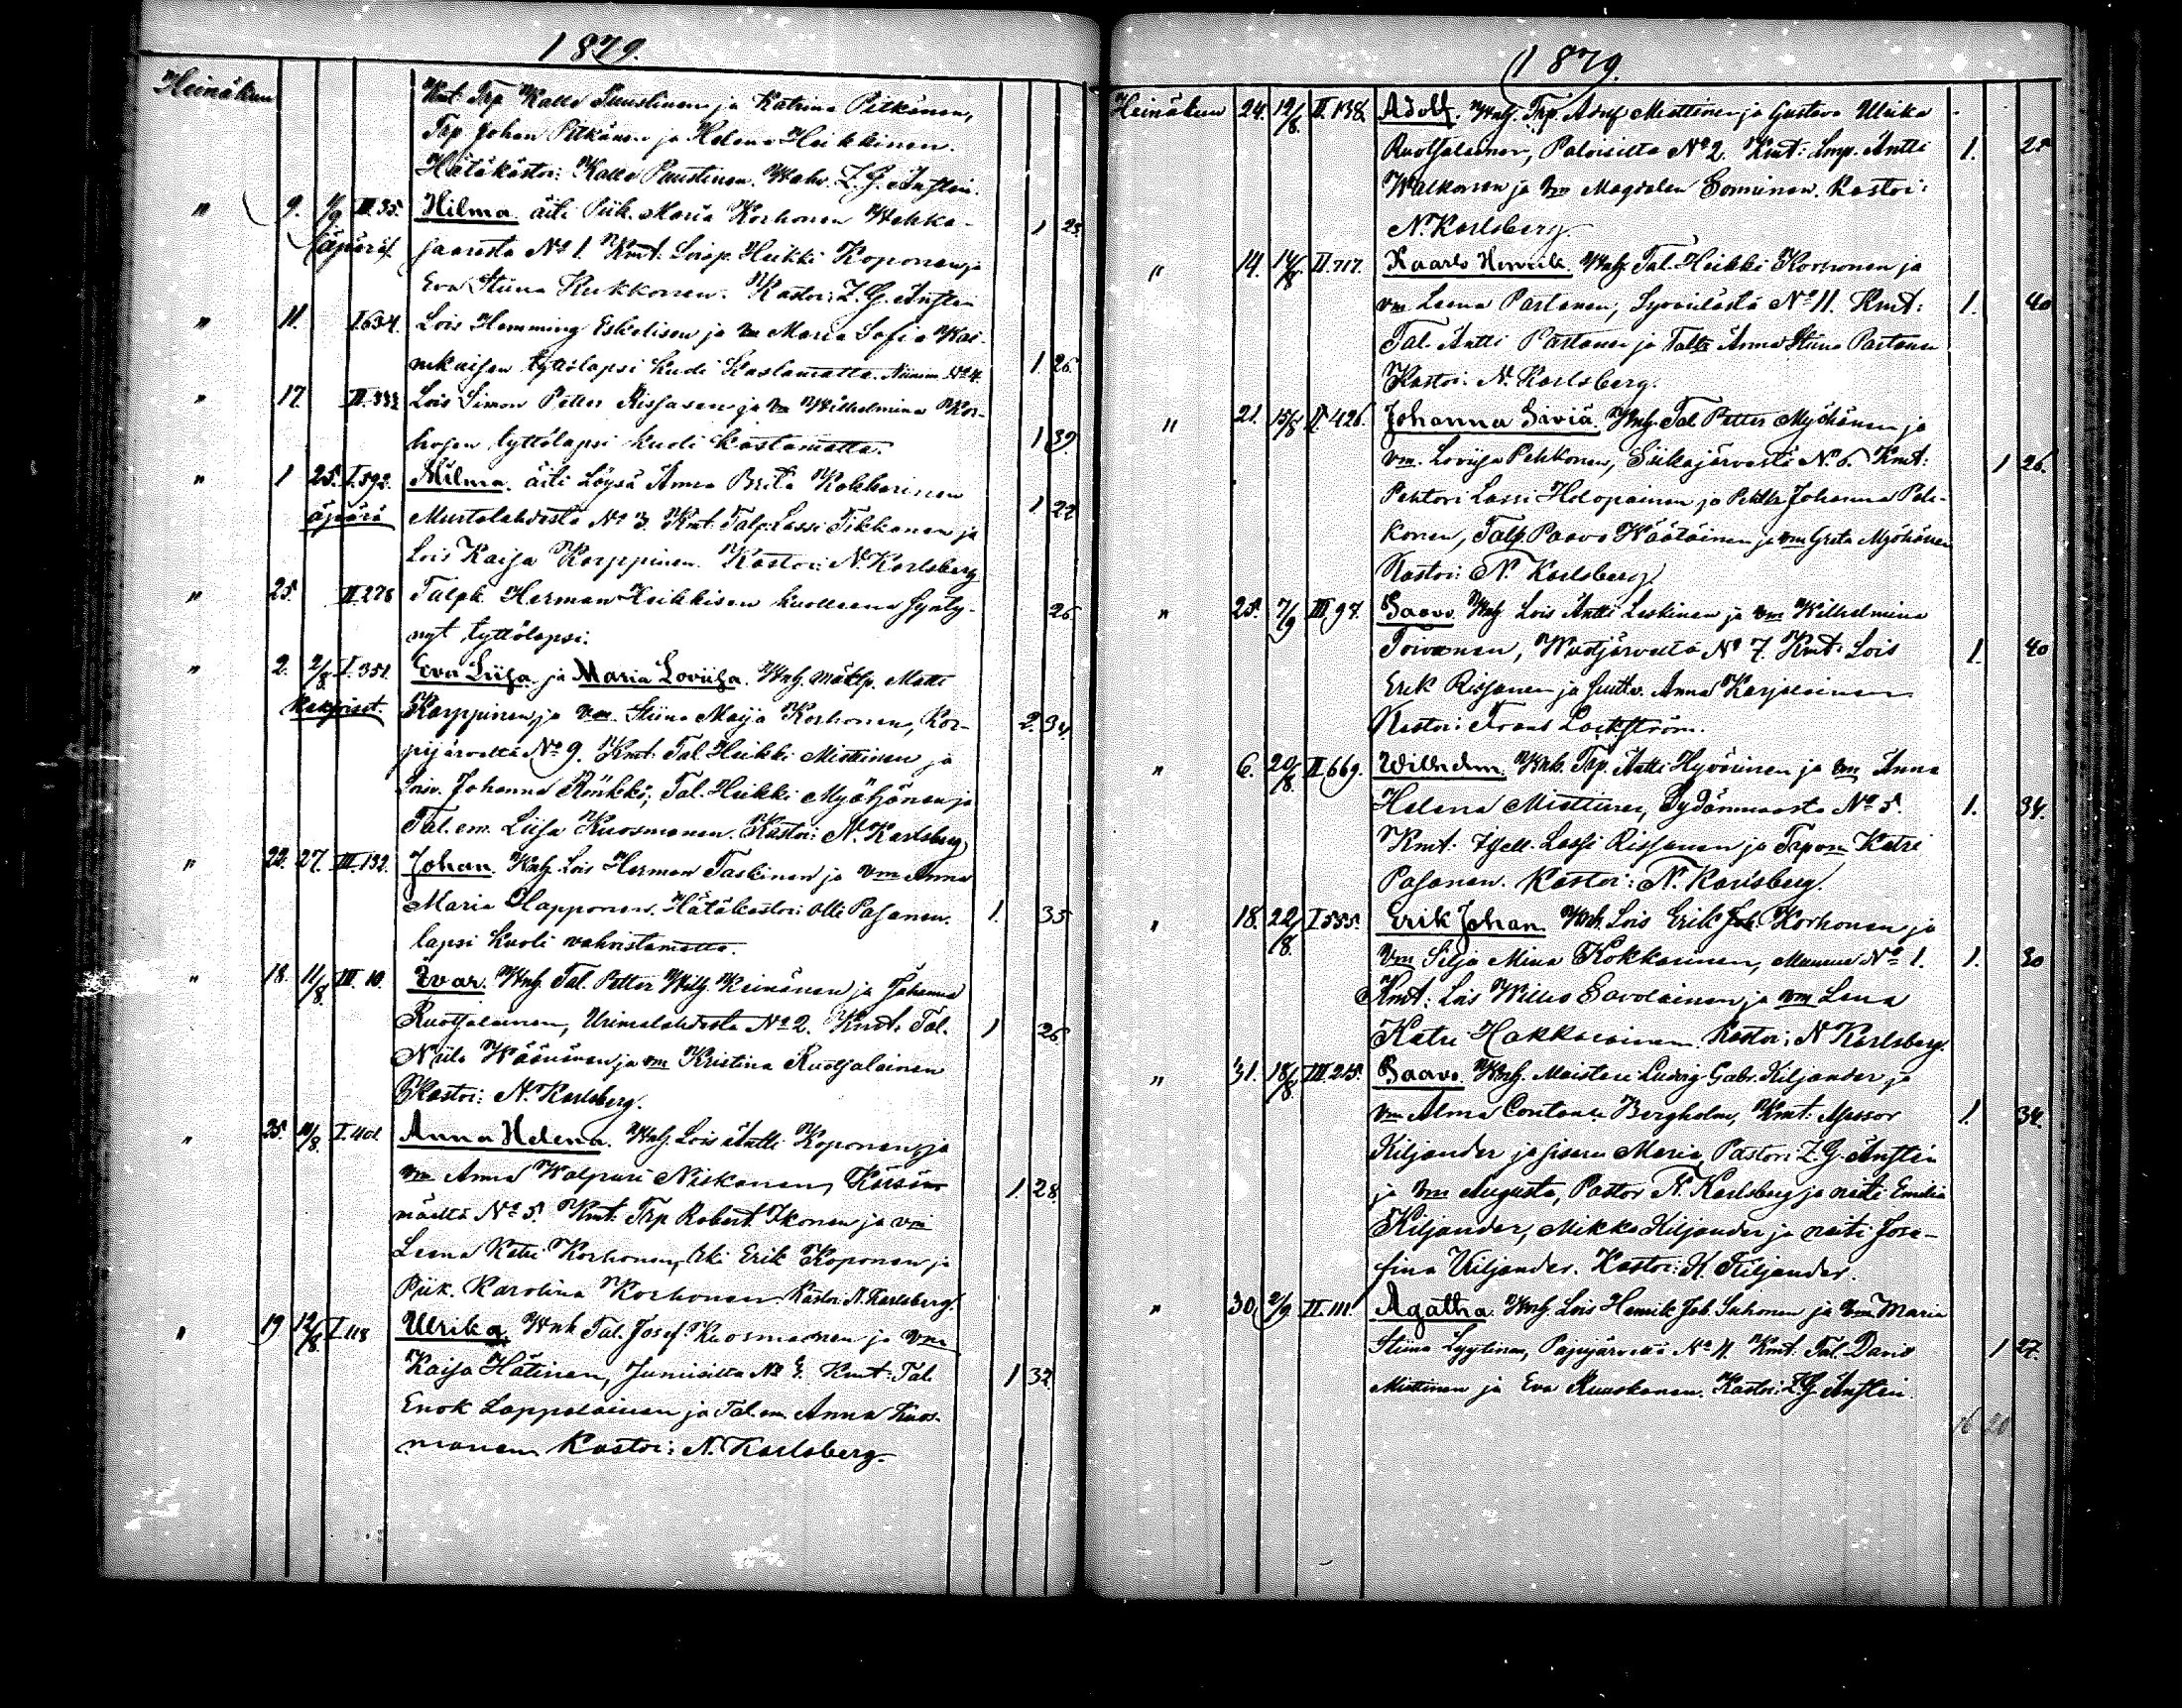 1879.
Heinäkuu
Kmt. Trp Kalle Puustinen ja Katrina Pitkänen,
Trp. Johan Pitkänen ja Helena Heikkinen.
Hätäkastoi: Kalle Puustinen. Wahv. Z. G.
" 9. III.35. Hilma. äiti Piik. Maria Korhonen Wehka-
äpärä jaaresta No 1. Kmt: Loisp. Heikki Koponen ja 1 23.
Eva Stiina Kukkonen. Kastoi: Z. G.
" 11. I.634. Lois Hemming Eskelisen ja vm Maria Sofia Kai-
nukaisen tyttölapsi kuoli kastamatta. No 4. 1 26.
" 17. Lois Simon Petter Rissasen ja vm Wilhelmina Kor-
hosen tyttölapsi kuoli kastamatta. 1 39.
" 1 25. I.592. Hilma. äiti Löysä Anna Brita Kokkarinen
äpärä Mustalahdesta No 3. Kmt. Talp. Lassi Tikkanen ja 1 22
Lois Kaisa Karppinen. Kastoi: N. Karlsberg
" 25. II 278 Talpk. Herman Heikkisen kuolleena synty- 26.
nyt tyttölapsi.
" 2. 2/8 I.351. Eva Liisa ja Maria Loviisa. Wnh. mäktp. Matti
kaksoiset. Karppinen ja vm. Stiina Maija Korhonen, Kor- 2. 34
pijärveltä No 9. Kmt. Tal. Heikki Miettinen ja
Loisv. Johanna Rönkkö, Tal. Heikki Myöhänen ja
Tal. em. Liisa Kuosmanen. Kastoi: N. Karlsberg
" 22. 27. III.132. Johan. Wnh. Lois Herman Taskinen ja vm Anna
Maria Happonen. Hätäkastoi: Olli Pasanen. 1. 35
lapsi kuoli vahvistamatta.
" 18. 11/8. III. 10. Ivar. Wnh. Tal. Petter Wilh. Keinänen ja Johanna
Ruotsalainen, Urimolahdesta No 2. Kmt: Tal. 1 26.
Niilo Wäänänen ja vm Kristina Ruotsalainen
Kastoi: N. Karlsberg.
" 25. 10/8. I.401. Anna Helena. Wnh. Lois Antti Koponen ja
vm Anna Walpuri Niskanen, 1. 28.
mäeltä No 5. Kmt: Trp Robert Ikonen ja vm
Leena Katri Korhonen, Erik Koponen ja
Piik. Karolina Korhonen. Kastoi: N. Karlsberg.
" 19 12/8 I.118 Ulrika. Wnh Tal. Josef Kuosmanen ja vm
Kaisa Hätinen, No Kmt: Tal. 1 32
Enok Lappalainen ja Tal. em. Anna Kuos-
manen Kastoi: N. Karlsberg.
1879.
Heinäkuu 24. 12/8. II.138. Adolf. Wnh. Trp. Adolf Miettinen ja Gustava Ulrika
Ruotsalainen, Paloisilta No 2. Kmt: Antti 1. 25
Walkonen ja vm Magdalen Sorninen. Kastoi:
N. Karlsberg.
" 14. 14/8 II.717. Kaarlo Henrik. Wnh. Tal. Heikki Korhonen ja
vm. Leena Partanen, Syvänlästä No 11. Kmt: 1. 40
Tal. Antti Partanen ja Anna Stiina Partanen
Kastoi: N. Karlsberg.
" 21. 15/8 II 426. Johanna Saviä. Wnh. Tal. Petter Myöhänen ja
vm. Loviisa Pekkonen, Siikajärvestä No 6. Kmt: 1 26.
Lassi Holopainen ja Johanna Pek-
konen, Talp. Paavo Wäätäinen ja vm Greta Myöhänen
Kastoi: N. Karlsberg.
" 25. 7/9 III.97. Paavo. Wnh. Lois Antti Leskinen ja vm Wilhelmina
Toivanen, Wuotjärveltä No 7. Kmt: Lois 1. 40
Erik Rissanen ja Anna Karjalainen
Kastoi: Frans Lackström.
" 6. 20/8. II 669. Wilhelm. Wnh. Trp. Antti Hyvärinen ja vm Anna
Helena Miettinen, Sydänmaasta No 5. 1. 34.
Kmt: Lassi Rissanen ja Katri
Pasanen. Kastoi: N. Karlsberg.
" 18. 22/8. I 555. Erik Johan. Wnh. Lois Erik Joh. Korhonen ja
vm Silja Miina Kokkarinen, No 1. 1. 30
Kmt: Lois Wille Savolainen ja vm Leena
Katri Hakkarainen. Kastoi: N Karlsberg.
" 31. 18/8 III.215. Paavo. Wnh. Maisteri Ludvig Gabr. Kiljander ja
vm Alma Constance Bergholm, Kmt: Assessor 1. 34.
Kiljander ja sisaren Maria, Pastori Z. G.
ja vm Augusta, Pastor N. Karlsberg ja neiti Emilia
Kiljander, Mikko Kiljander ja neiti Jose-
fina Kiljander. Kastoi: K. Kiljander.
" 30. 2/9 II.111. Agatha. Wnh. Lois Henrik Joh. Suhonen ja vm Maria
Stiina Lyytinen, Pajujärveltä No 11. Kmt: Tal. David 1 27.
Miettinen ja Eva Ruuskanen. Kastoi: Z G
16 20